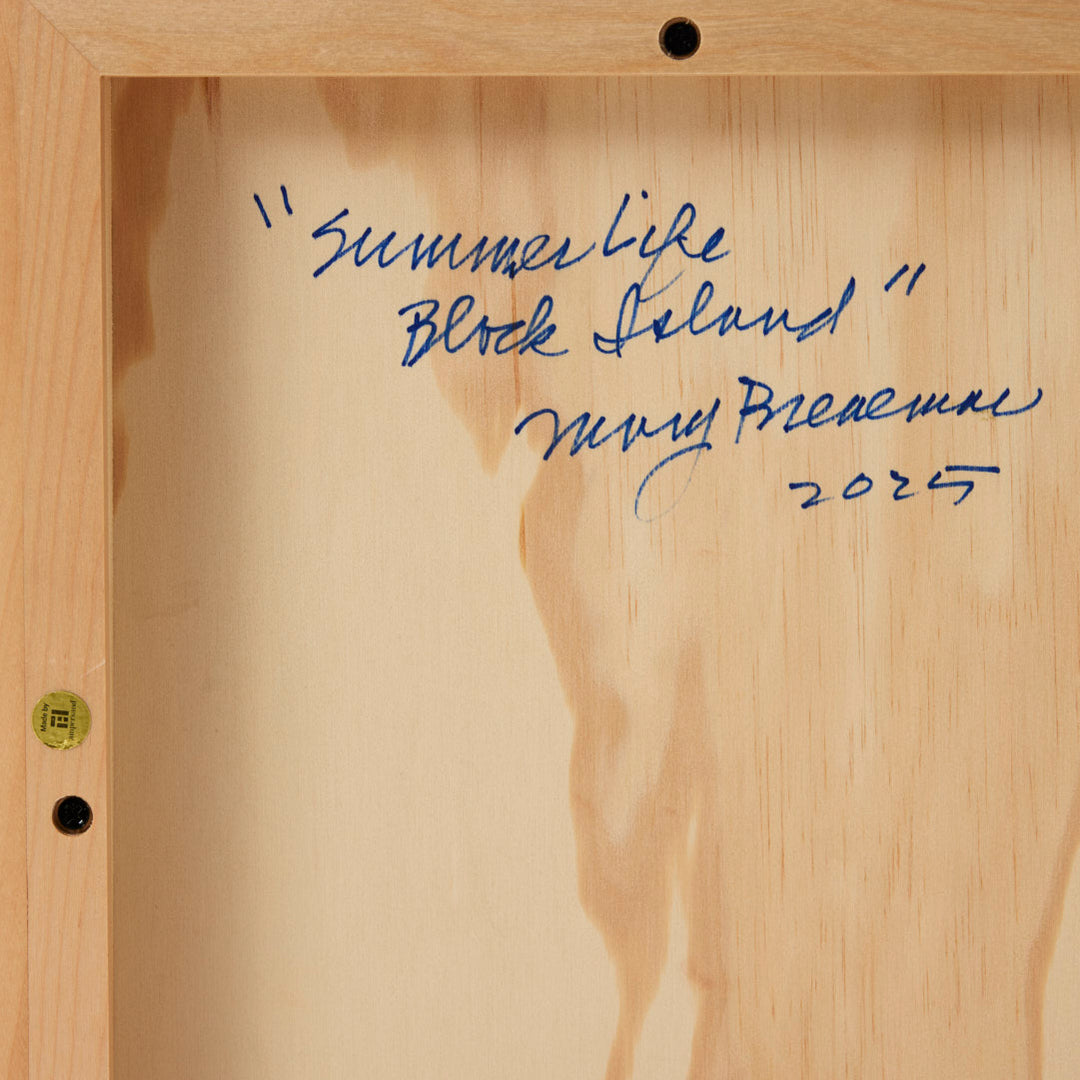 "Summer Life
Block Island"
Mary Breneman
2025
Made by
Ampersand